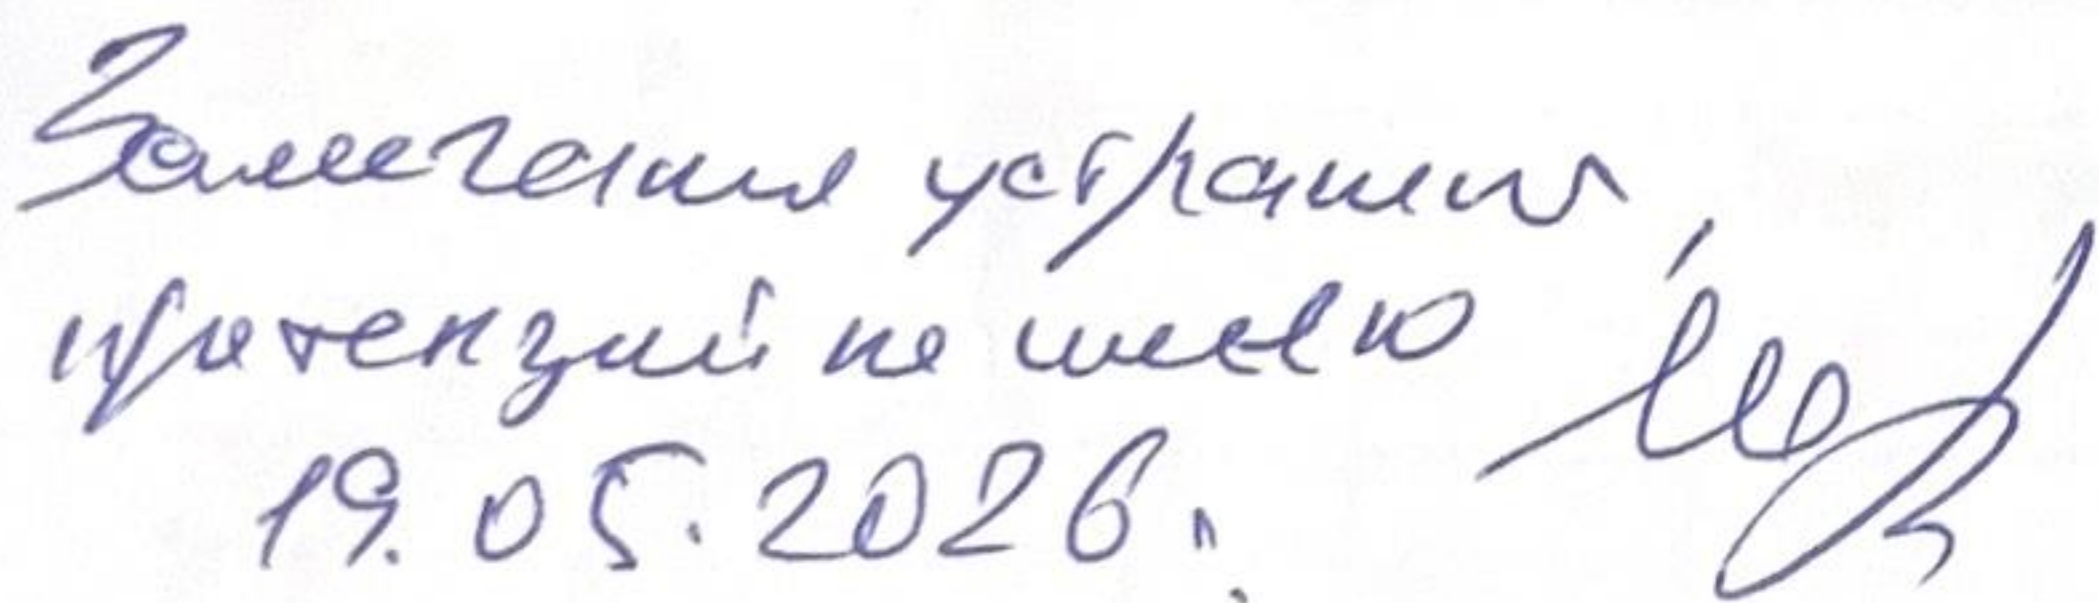 Замечания устранены,
претензий не имею
19.05.2026г.